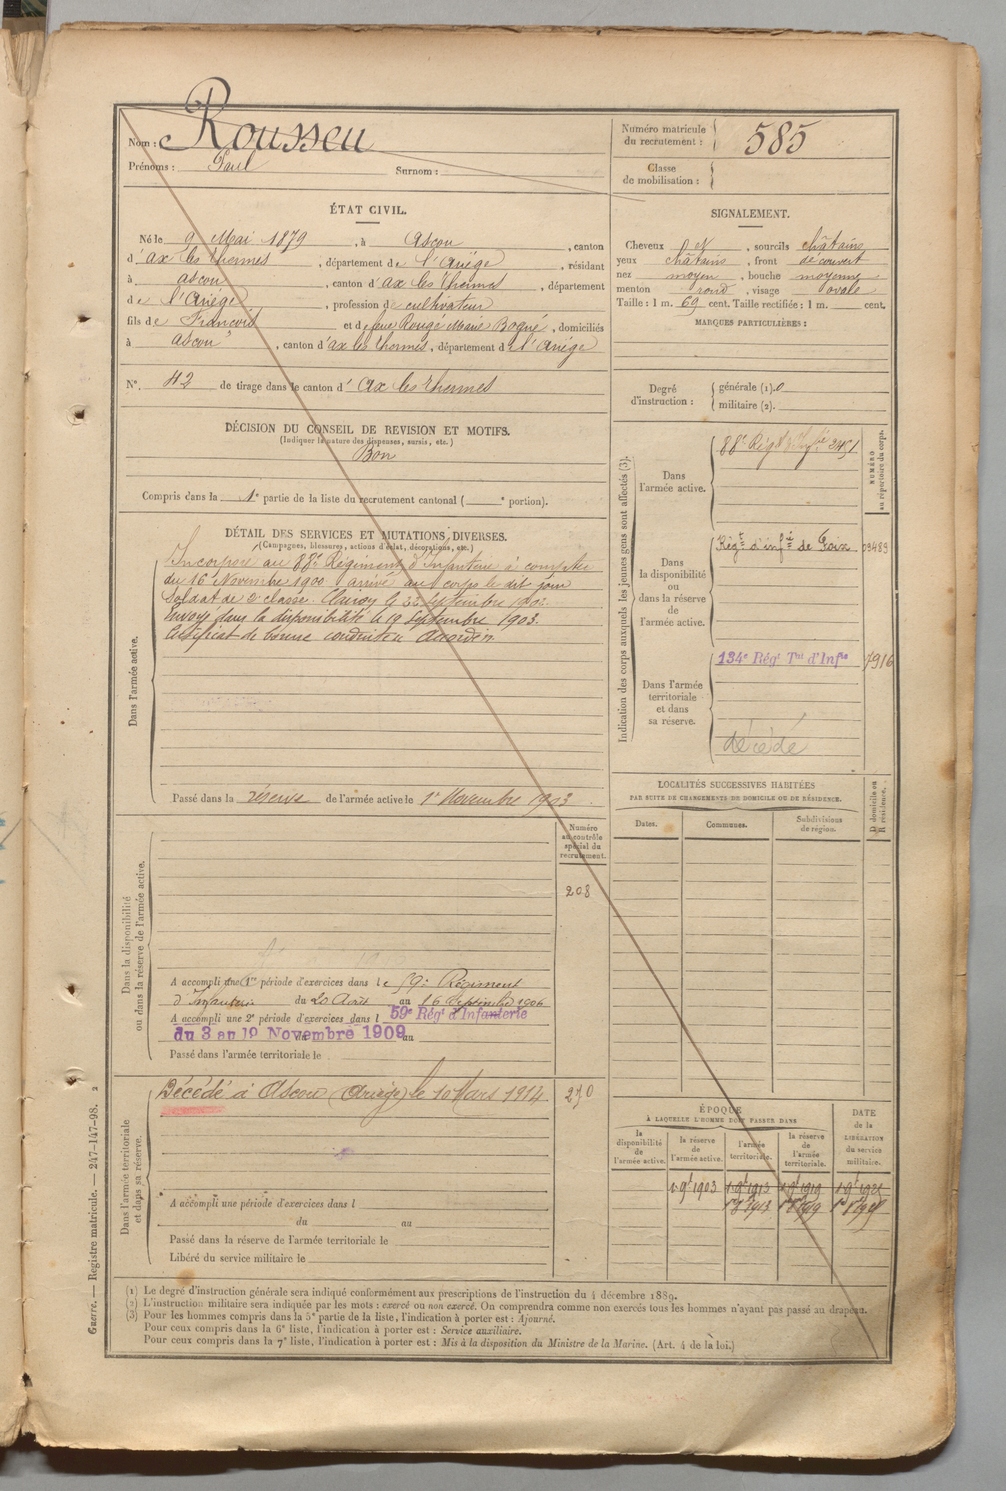 Nom : Rousseu
Prénoms : Paul Surnom :
Numéro matricule du recrutement : 585
Classe de mobilisation :
ÉTAT CIVIL.
Né le 9 Mai 1879, à Ascou, canton
d'ax les thermes, département de l'Ariège, résidant
à ascou, canton d'ax les thermes, département
de l'Ariège, profession de cultivateur
fils de Francois et de feue Rougé Marie, domiciliés
à ascou, canton d'ax les thermes, département de l'Ariège
N°. 42 de tirage dans le canton d'Ax les thermes
SIGNALEMENT.
Cheveux N, sourcils châtains
yeux châtains, front découvert
nez moyen, bouche moyenne
menton rond, visage ovale
Taille : 1 m. 69 cent. Taille rectifiée : 1 m. cent.
MARQUES PARTICULIÈRES :
Degré d'instruction :
générale (1). 0
militaire (2).
DÉCISION DU CONSEIL DE REVISION ET MOTIFS.
(Indiquer la nature des dispenses, sursis, etc.)
Bon
Compris dans la 1e partie de la liste du recrutement cantonal ( e portion).
DÉTAIL DES SERVICES ET MUTATIONS DIVERSES.
(Campagnes, blessures, actions d'éclat, décorations, etc.)
Dans l'armée active.
Incorporé au 88e Régiment d'Infanterie à compter
du 16 Novembre 1900 arrivé au corps le dit jour
Soldat de 2e classe. Clairon le 22 septembre 1902.
Envoyé dans la disponibilité le 19 Septembre 1903.
Certificat de bonne conduite accordé.
Passé dans la réserve de l'armée active le 1er Novembre 1903
Indication des corps auxquels les jeunes gens sont affectés (3).
NUMÉRO au répertoire du corps.
Dans l'armée active.
88e Régt d'Infie 2451
Dans la disponibilité ou dans la réserve de l'armée active.
Régt d'infie de Foix 03483
Dans l'armée territoriale et dans sa réserve.
134e Régt Tal d'Infie 7916
décédé
LOCALITÉS SUCCESSIVES HABITÉES
PAR SUITE DE CHANGEMENTS DE DOMICILE OU DE RÉSIDENCE.
Dates. Communes. Subdivisions de région. D domicile ou R résidence.
Dans la disponibilité ou dans la réserve de l'armée active.
Numéro au contrôle spécial du recrutement.
208
A accompli une 1re période d'exercices dans le 59e Régiment
d'Infanterie du 20 Août au 16 Septembre 1906
A accompli une 2e période d'exercices dans l 59e Régt d'Infanterie
du 3 au 19 Novembre 1909 au
Passé dans l'armée territoriale le
Dans l'armée territoriale et dans sa réserve.
Décédé à Ascou (Ariège) le 10 Mars 1914
A accompli une période d'exercices dans l
du au
Passé dans la réserve de l'armée territoriale le
Libéré du service militaire le
ÉPOQUE
À LAQUELLE L'HOMME DOIT PASSER DANS
DATE de la LIBÉRATION du service militaire.
la disponibilité de l'armée active.
la réserve de l'armée active.
l'armée territoriale.
la réserve de l'armée territoriale.
Guerre. — Registre matricule. — 247-147-98. 2
(1) Le degré d'instruction générale sera indiqué conformément aux prescriptions de l'instruction du 4 décembre 1889.
(2) L'instruction militaire sera indiquée par les mots : exercé ou non exercé. On comprendra comme non exercés tous les hommes n'ayant pas passé au drapeau.
(3) Pour les hommes compris dans la 5e partie de la liste, l'indication à porter est : Ajourné.
Pour ceux compris dans la 6e liste, l'indication à porter est : Service auxiliaire.
Pour ceux compris dans la 7e liste, l'indication à porter est : Mis à la disposition du Ministre de la Marine. (Art. 4 de la loi.)